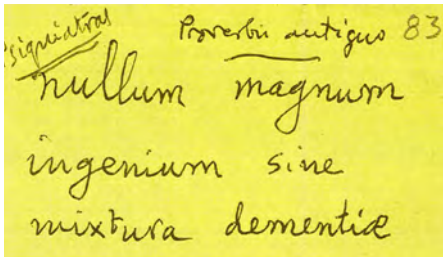 Psiquiatras
Proverbio antiguo 83
nullum magnum
ingenium sine
mixtura dementiæ